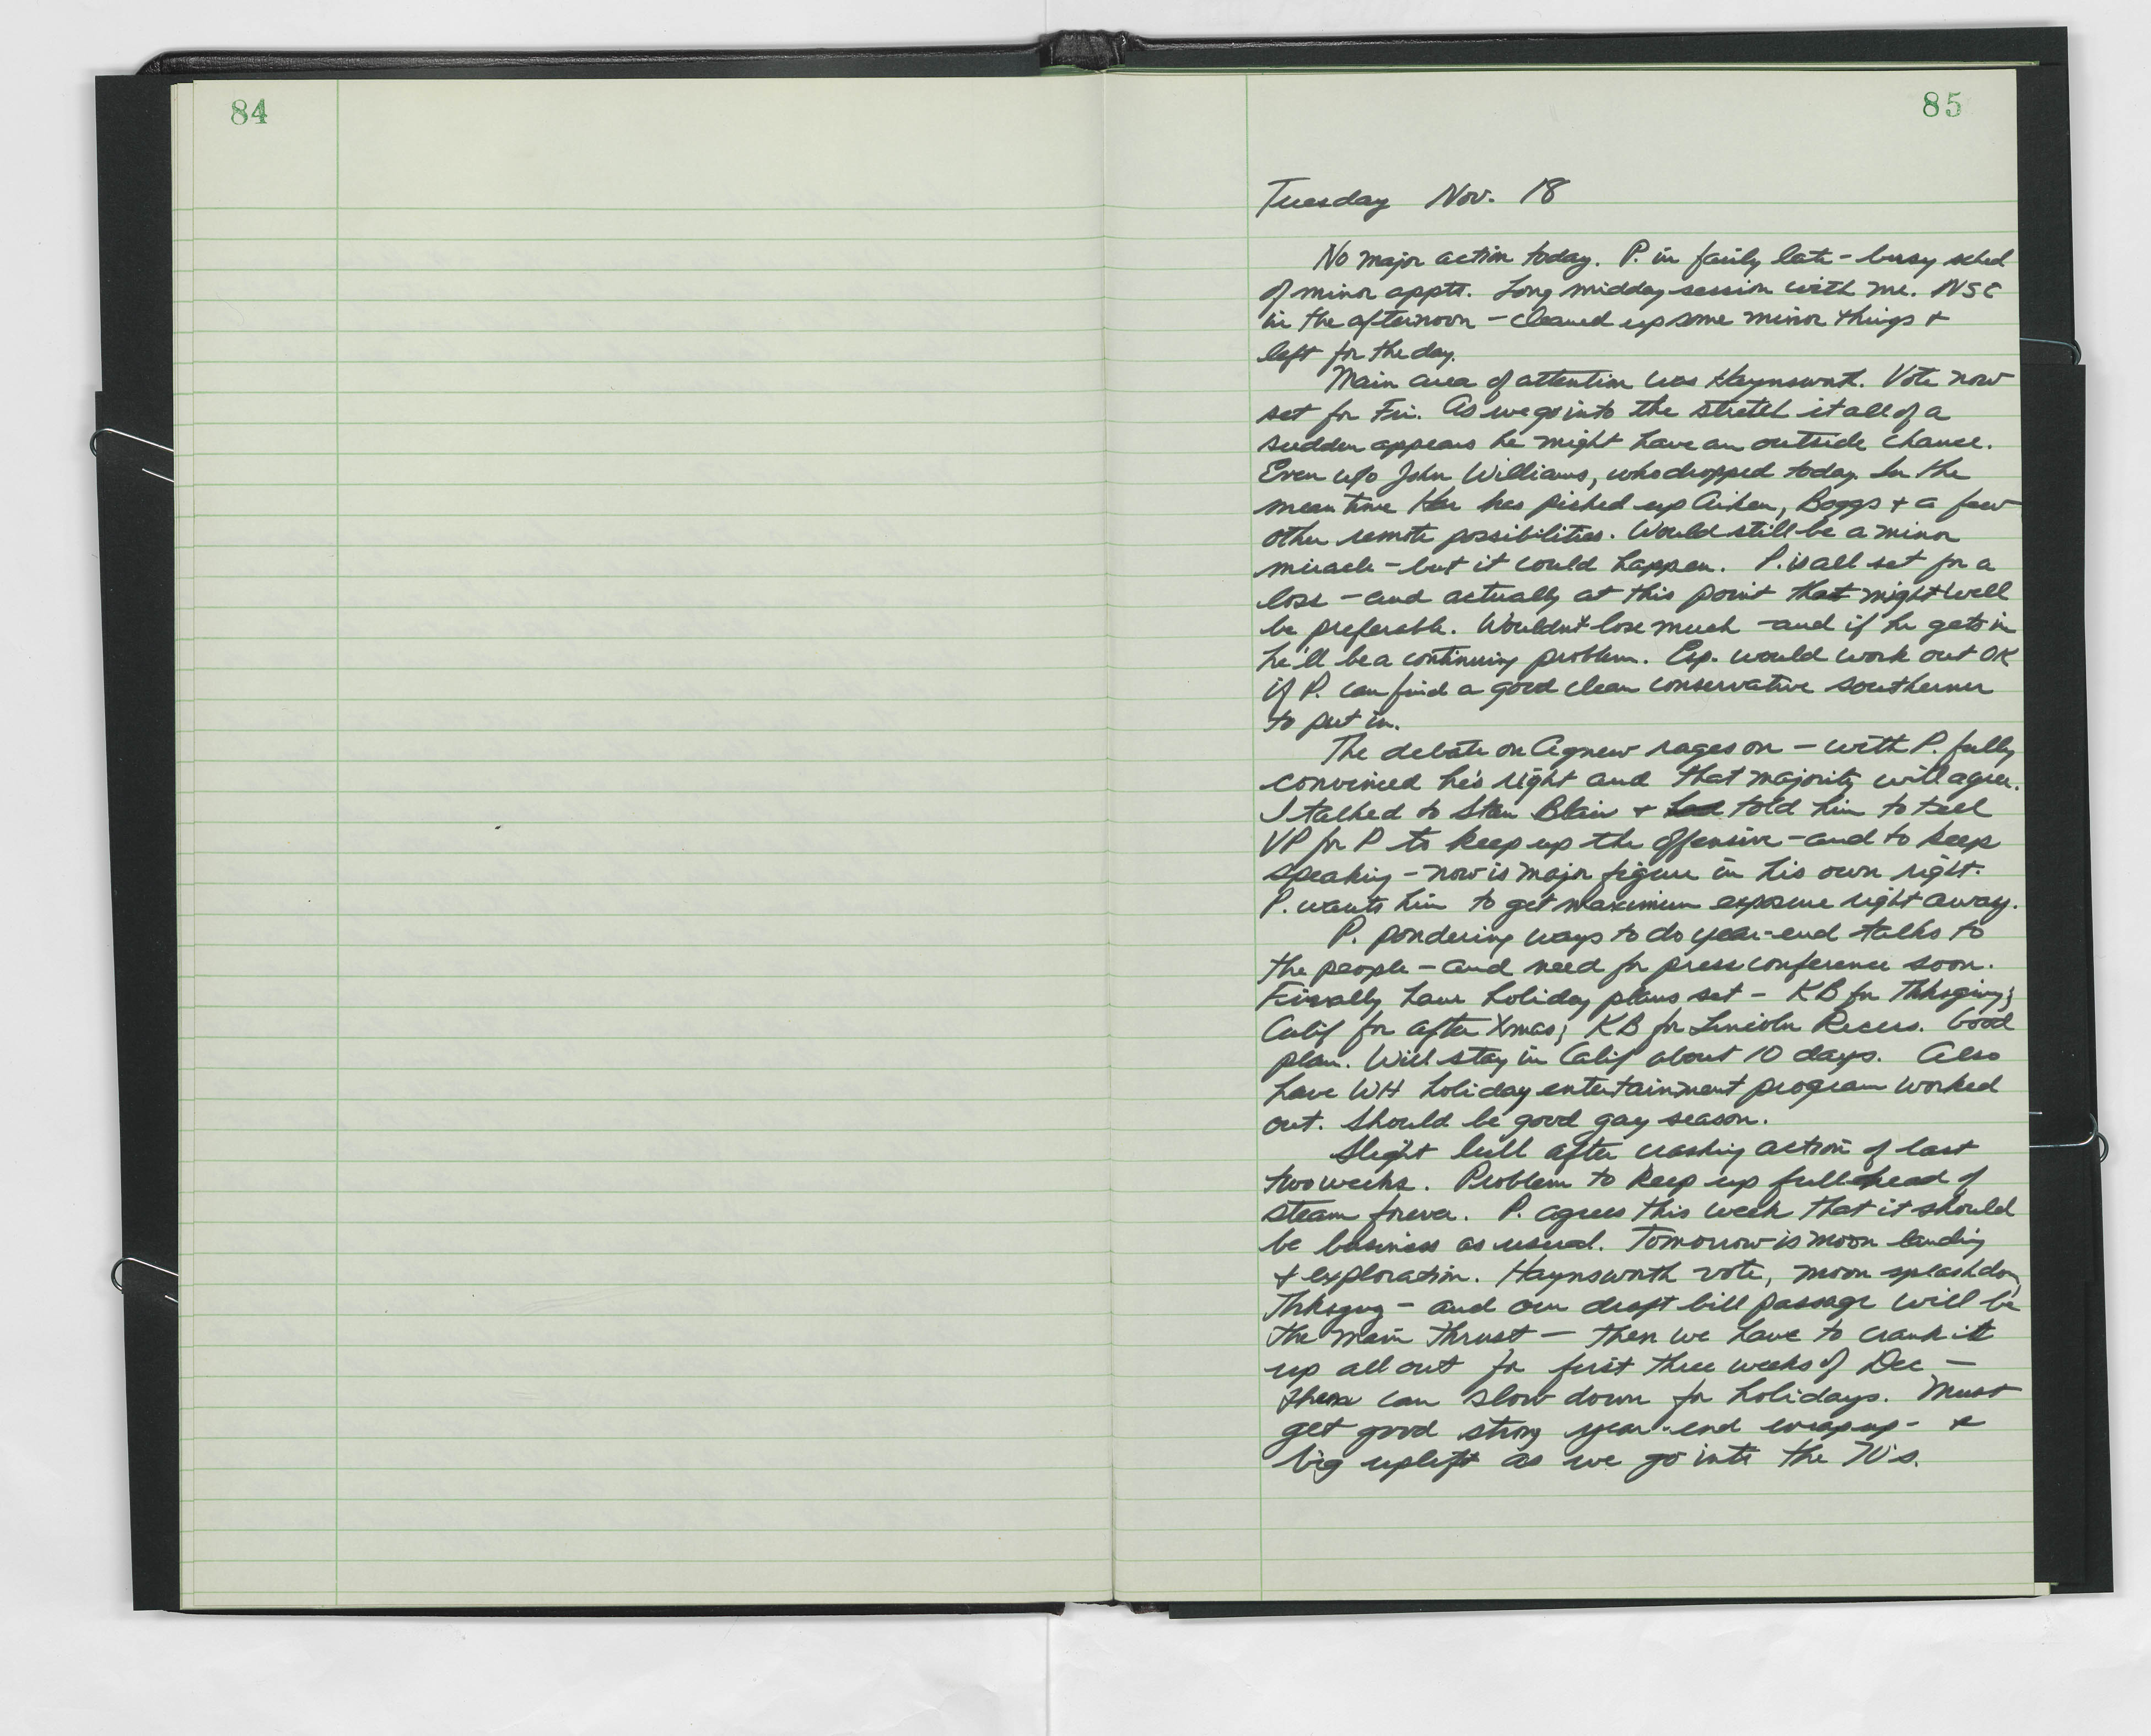 84
85
Tuesday Nov. 18
No major action today. P. in fairly late - busy sched
of minor appts. Long midday session with me. NSC
in the afternoon - cleaned up some minor things +
left for the day.
Main area of attention was Haynsworth. Vote now
set for Fri. As we go into the stretch it all of a
sudden appears he might have an outside chance.
Even w/o John Williams, who dropped today. In the
meantime Har has picked up Aiken, Boggs + a few
other remote possibilities. Would still be a minor
miracle - but it could happen. P. is all set for a
loss - and actually at this point that might well
be preferable. Wouldn't lose much - and if he gets in
he'll be a continuing problem. Esp. would work out OK
if P. can find a good clean conservative southerner
to put in.
The debate on Agnew rages on - with P. fully
convinced he's right and that majority will agree.
I talked to Stan Blair + told him to tell
VP for P to keep up the offensive - and to keep
speaking - now is major figure in his own right.
P. wants him to get maximum exposure right away.
P. pondering ways to do year-end talks to
the people - and need for press conference soon.
Finally have holiday plans set - KB for Thksgiving;
Calif for after Xmas; KB for Lincoln Recess. Good
plan. Will stay in Calif about 10 days. Also
have WH holiday entertainment program worked
out. Should be good gay season.
Slight lull after crashing action of last
two weeks. Problem to keep up full head of
steam forever. P. agrees this week that it should
be business as usual. Tomorrow is moon landing
+ exploration. Haynsworth vote, moon splashdown,
Thksgvg - and our draft bill passage will be
the main thrust - then we have to crank it
up all out for first three weeks of Dec -
then can slow down for holidays. Must
get good strong year-end wrapup - +
big uplift as we go into the 70's.